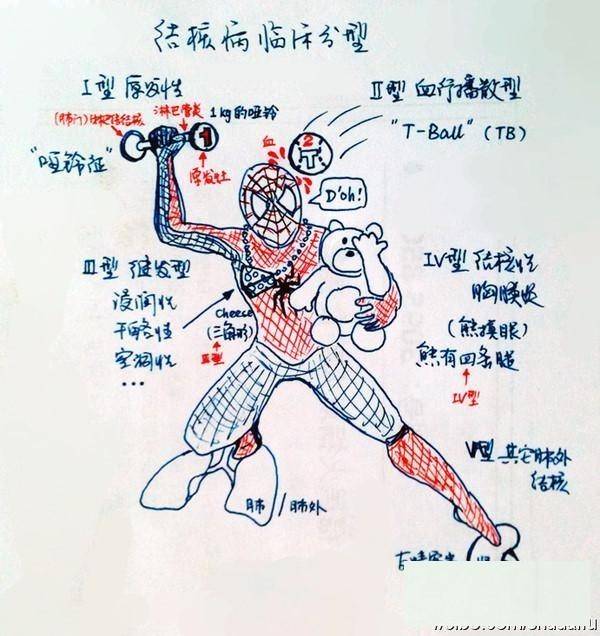 结核病临床分型
I型 原发性
(肺门)淋巴结结核
淋巴管炎
1kg的哑铃
"哑铃征"
1
原发灶
II型 血行播散型
"T-Ball" (TB)
血
2
T
D'oh!
III型 继发型
浸润性
干酪性
空洞性
...
cheese
(三角形)
III型
IV型 结核性
胸膜炎
(熊摸眼)
熊有四条腿
IV型
V型 其它肺外
结核
肺/肺外